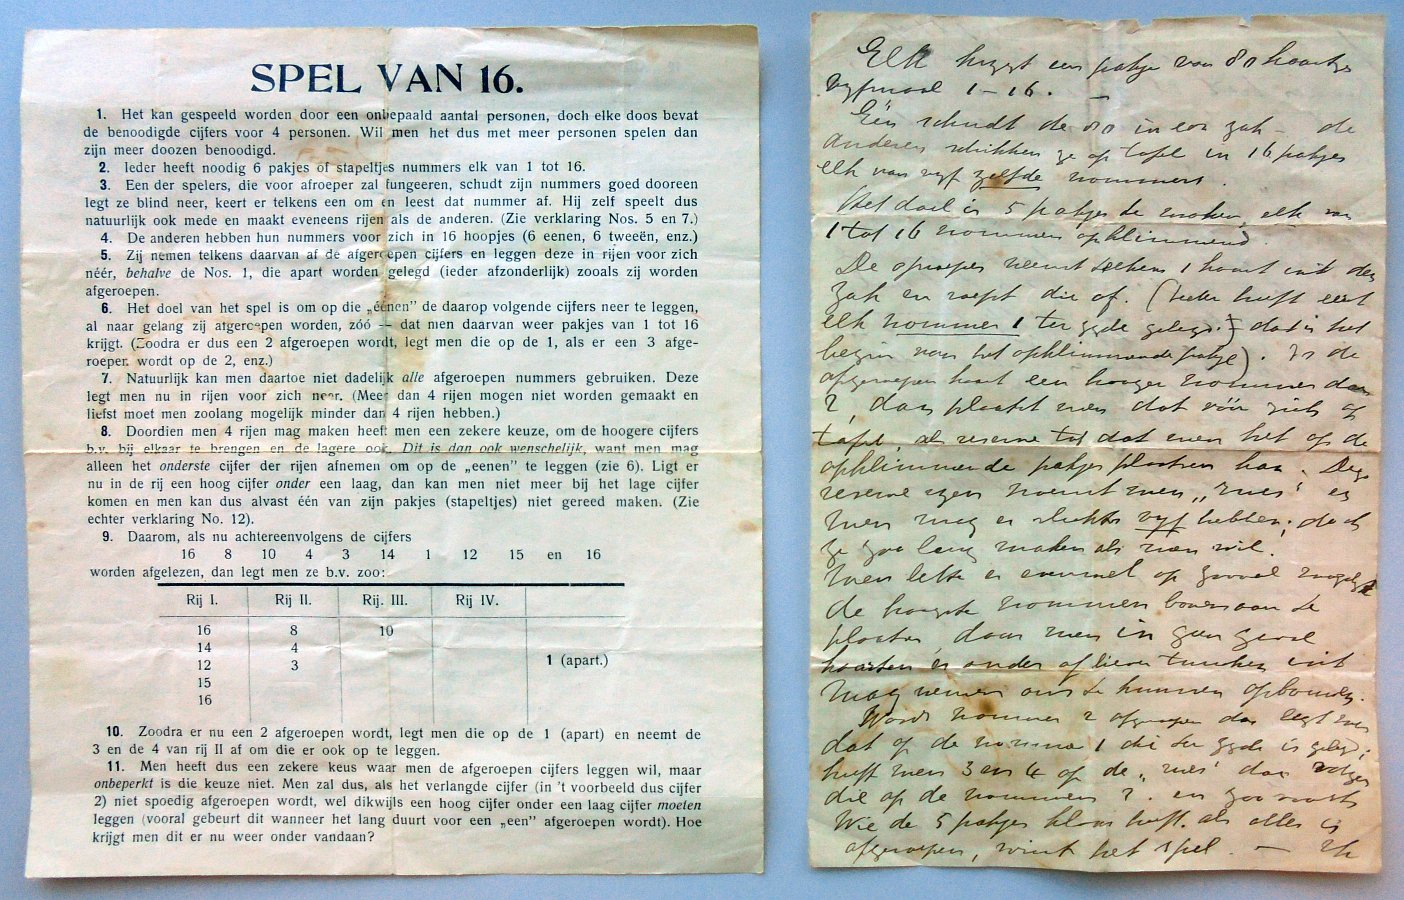 SPEL VAN 16.
1. Het kan gespeeld worden door een onbepaald aantal personen, doch elke doos bevat
de benoodigde cijfers voor 4 personen. Wil men het dus met meer personen spelen dan
zijn meer doozen benoodigd.
2. Ieder heeft noodig 6 pakjes of stapeltjes nummers elk van 1 tot 16.
3. Een der spelers, die voor afroeper zal fungeeren, schudt zijn nummers goed dooreen
legt ze blind neer, keert er telkens een om en leest dat nummer af. Hij zelf speelt dus
natuurlijk ook mede en maakt eveneens rijen als de anderen. (Zie verklaring Nos. 5 en 7.)
4. De anderen hebben hun nummers voor zich in 16 hoopjes (6 eenen, 6 tweeën, enz.)
5. Zij nemen telkens daarvan af de afgeroepen cijfers en leggen deze in rijen voor zich
néér, behalve de Nos. 1, die apart worden gelegd (ieder afzonderlijk) zooals zij worden
afgeroepen.
6. Het doel van het spel is om op die „éénen" de daarop volgende cijfers neer te leggen,
al naar gelang zij afgeroepen worden, zóó — dat men daarvan weer pakjes van 1 tot 16
krijgt. (Zoodra er dus een 2 afgeroepen wordt, legt men die op de 1, als er een 3 afge-
roepen wordt op de 2, enz.)
7. Natuurlijk kan men daartoe niet dadelijk alle afgeroepen nummers gebruiken. Deze
legt men nu in rijen voor zich neer. (Meer dan 4 rijen mogen niet worden gemaakt en
liefst moet men zoolang mogelijk minder dan 4 rijen hebben.)
8. Doordien men 4 rijen mag maken heeft men een zekere keuze, om de hoogere cijfers
b.v. bij elkaar te brengen en de lagere ook. Dit is dan ook wenschelijk, want men mag
alleen het onderste cijfer der rijen afnemen om op de „eenen" te leggen (zie 6). Ligt er
nu in de rij een hoog cijfer onder een laag, dan kan men niet meer bij het lage cijfer
komen en men kan dus alvast één van zijn pakjes (stapeltjes) niet gereed maken. (Zie
echter verklaring No. 12).
9. Daarom, als nu achtereenvolgens de cijfers
16 8 10 4 3 14 1 12 15 en 16
worden afgelezen, dan legt men ze b.v. zoo:
Rij I. Rij II. Rij. III. Rij IV.
16 8 10
14 4
12 3 1 (apart.)
15
16
10. Zoodra er nu een 2 afgeroepen wordt, legt men die op de 1 (apart) en neemt de
3 en de 4 van rij II af om die er ook op te leggen.
11. Men heeft dus een zekere keus waar men de afgeroepen cijfers leggen wil, maar
onbeperkt is die keuze niet. Men zal dus, als het verlangde cijfer (in 't voorbeeld dus cijfer
2) niet spoedig afgeroepen wordt, wel dikwijls een hoog cijfer onder een laag cijfer moeten
leggen (vooral gebeurt dit wanneer het lang duurt voor een „een" afgeroepen wordt). Hoe
krijgt men dit er nu weer onder vandaan?
Elk krijgt een pakje van 80 kaartjes
vijfmaal 1–16. —
Eén schudt de 80 in een zak – de
anderen schikken ze op tafel in 16 pakjes
elk van vijf zelfde nommers.
Het doel is 5 pakjes te maken, elk van
1 tot 16 nommers opklimmend.
De oproeper neemt telkens 1 kaart uit den
zak en roept die af. (Ieder heeft eerst
elk nommer 1 ter zijde gelegd; dat is het
begin van het opklimmende pakje). Is de
afgeroepen kaart een hooger nommer dan
2, dan plaatst men dat vóór zich op
tafel als reserve tot dat men het op de
opklimmende pakjes plaatsen kan. Deze
reserve rijen noemt men „rues" en
men mag er slechts vijf hebben; doch
ze zoo lang maken als men wil.
Men lette er evenwel op zooveel mogelijk
de hoogste nommers bovenaan te
plaatsen, daar men in geen geval
kaarten er onder of liever tusschen uit
mag nemen om te kunnen opbouwen.
Wordt nommer 2 afgeroepen dan legt men
dat op de nommer 1 die ter zijde is gelegd;
heeft men 3 en 4 op de „rues" dan volgen
die op de nommer 2. en zoo voorts
Wie de 5 pakjes klaar heeft. als alles is
afgeroepen, wint het spel. —